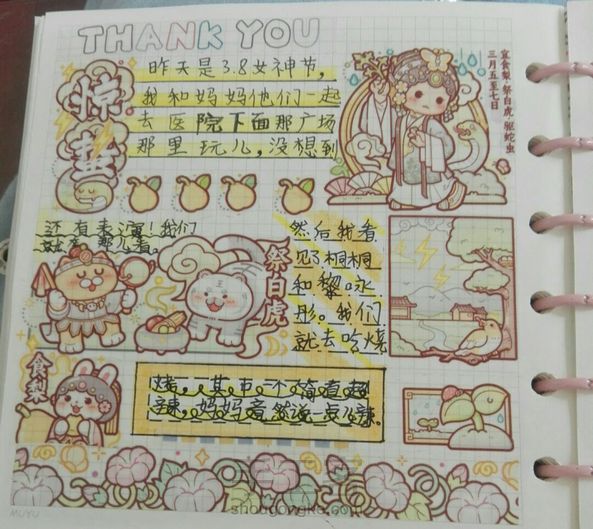 THANK YOU
惊蛰
昨天是3.8女神节,
我和妈妈他们一起
去医院下面那广场
那里玩儿,没想到
宜食梨 祭白虎 驱蛇虫
三月五至七日
还有表演!我们
就在那儿看。
然后我看
见了桐桐
和黎咏
彤。我们
就去吃烧
祭白虎
食梨
烤,其中一个有道超
辣,妈妈竟然说一点儿辣。
MUYU
shougongke.com